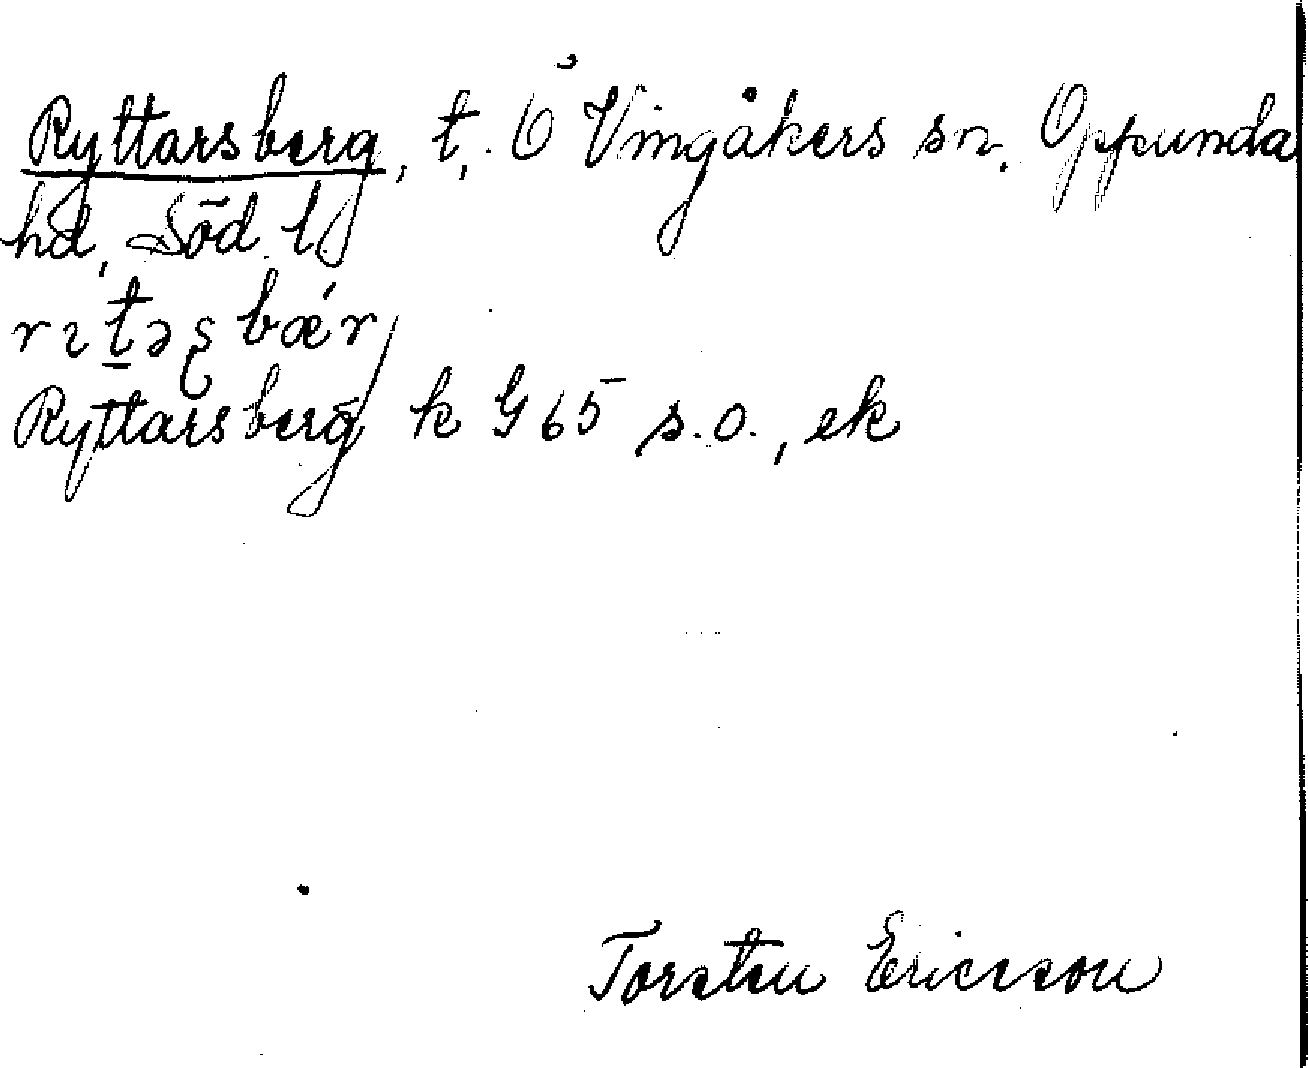 Ryttarsberg, t. Ö Vingåkers sn. Oppunda
hd, Söd. l
rɪt̠əʂbǽrj
Ryttarsberg k G 65 s.o., ek
Torsten Ericsson